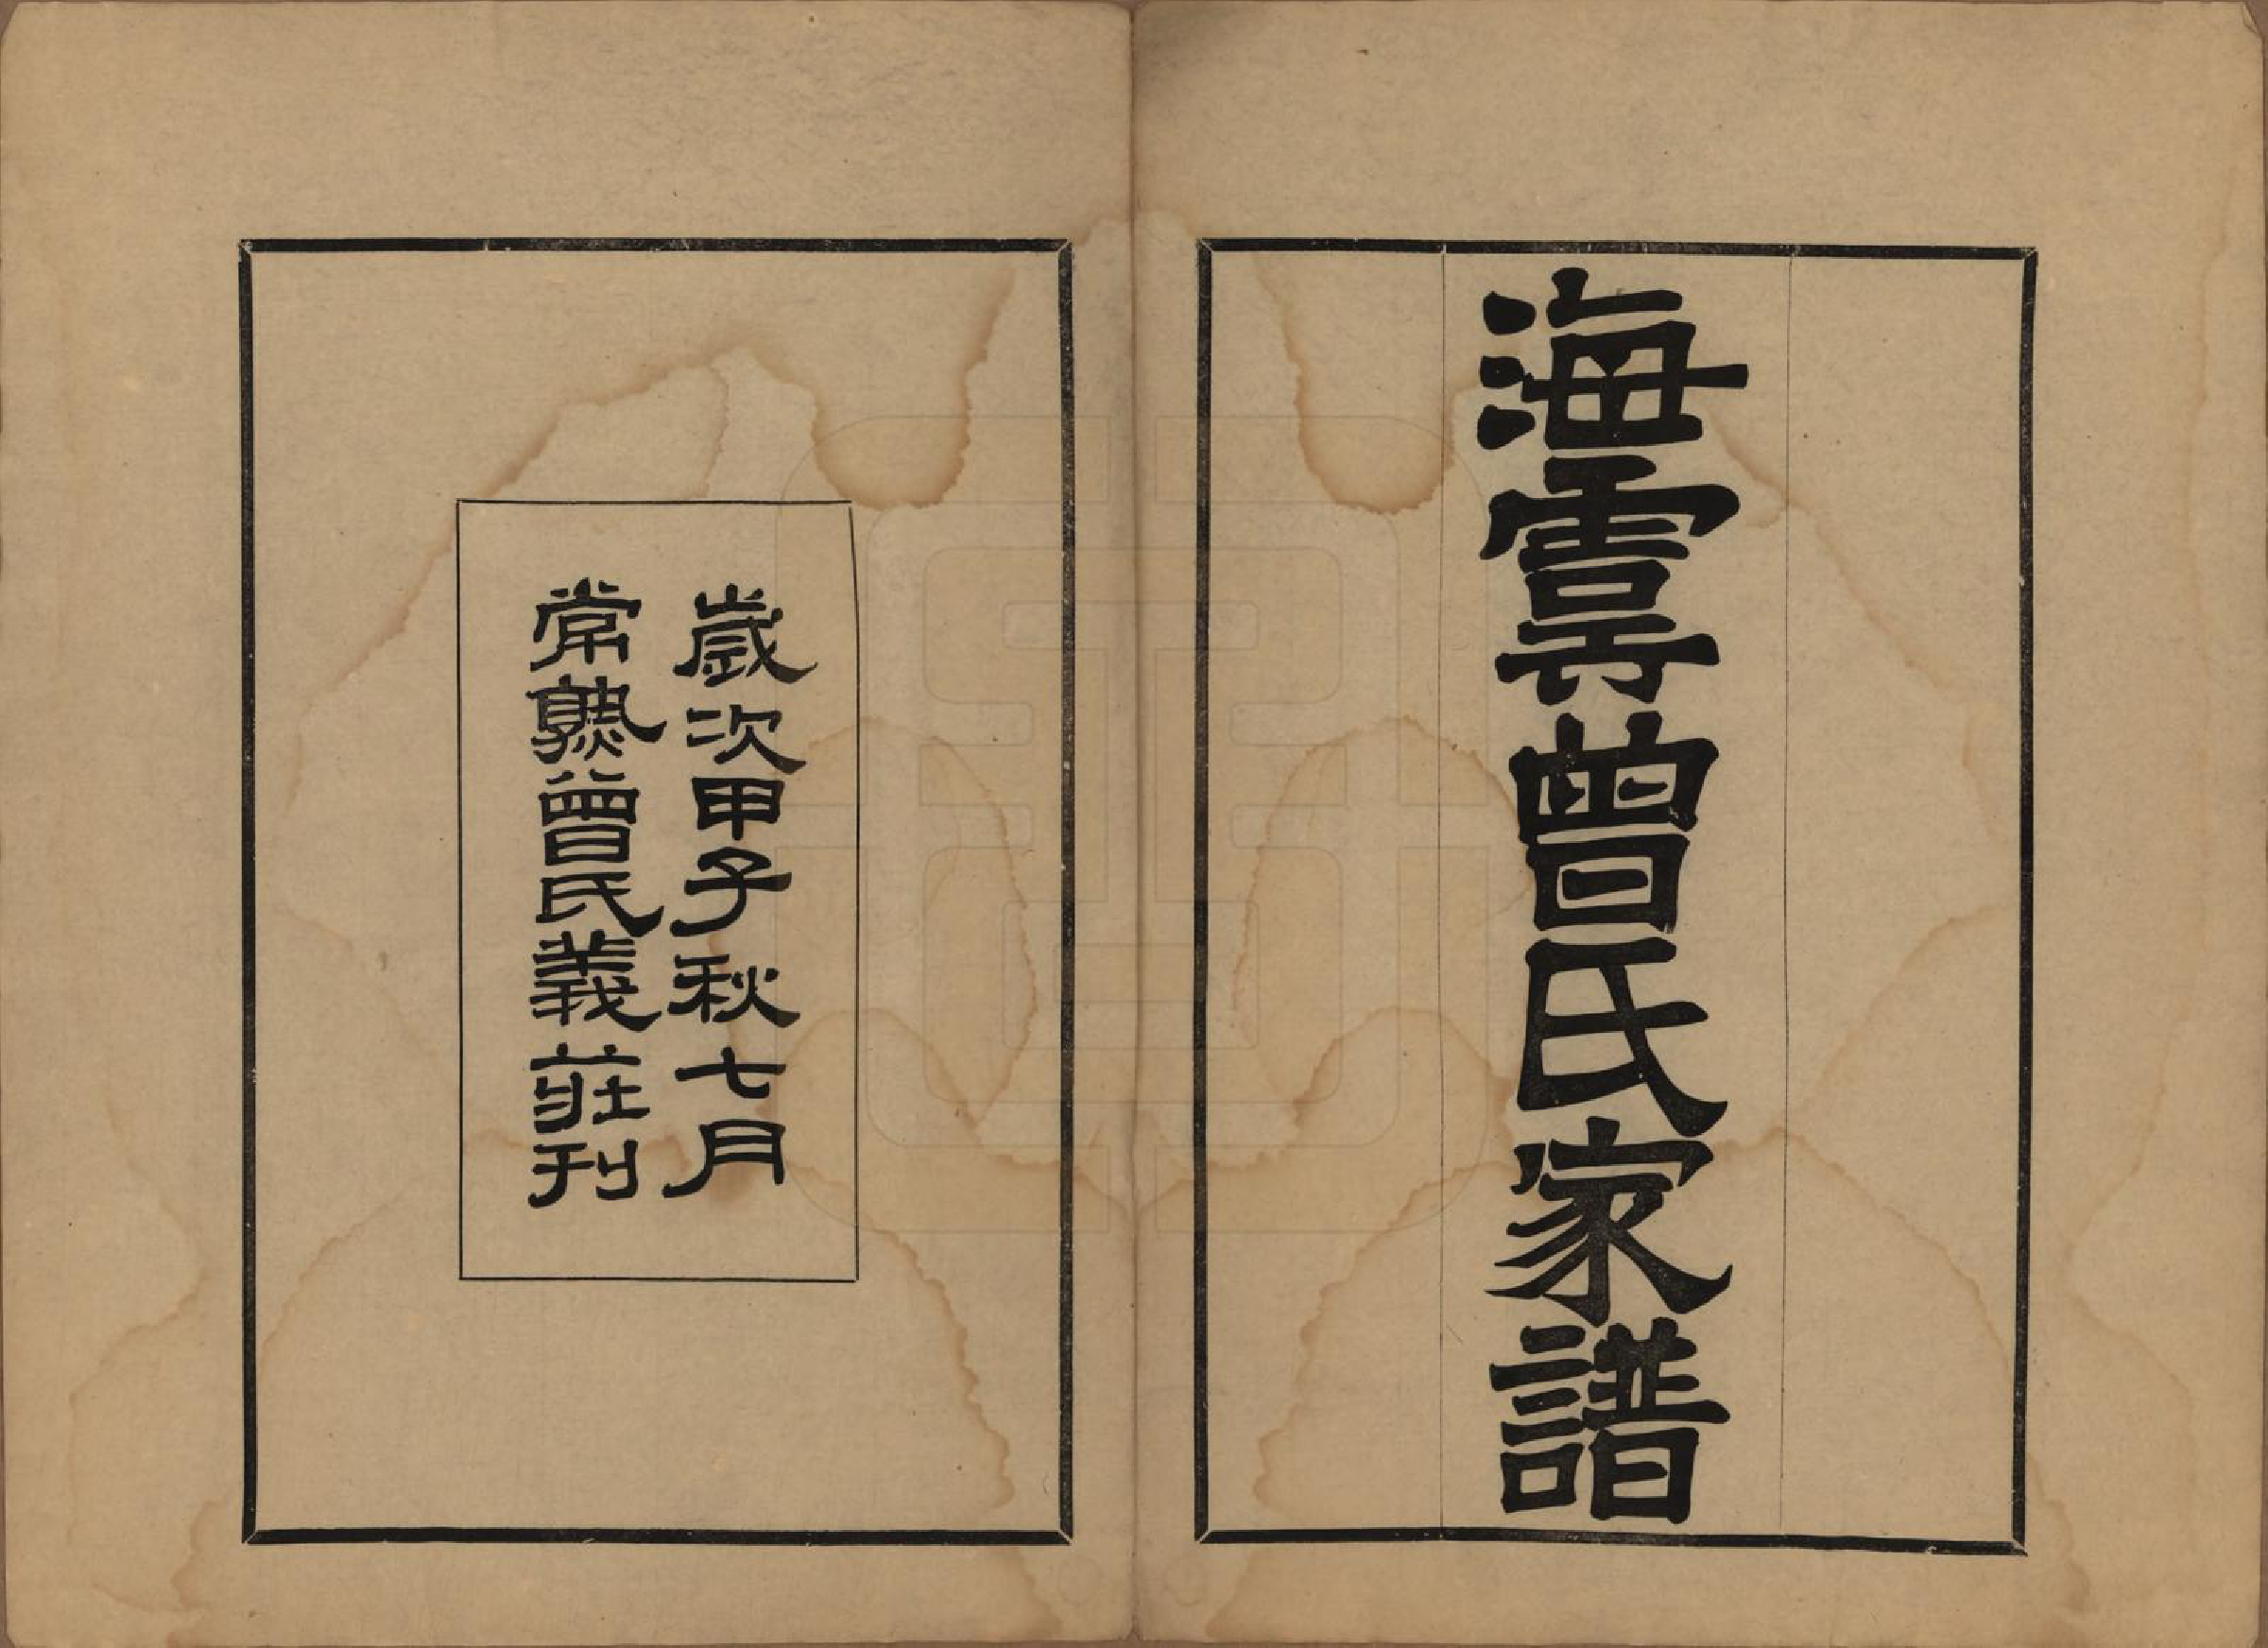 海雩曾氏家譜
歲次甲子秋七月
常熟曾氏義莊刊